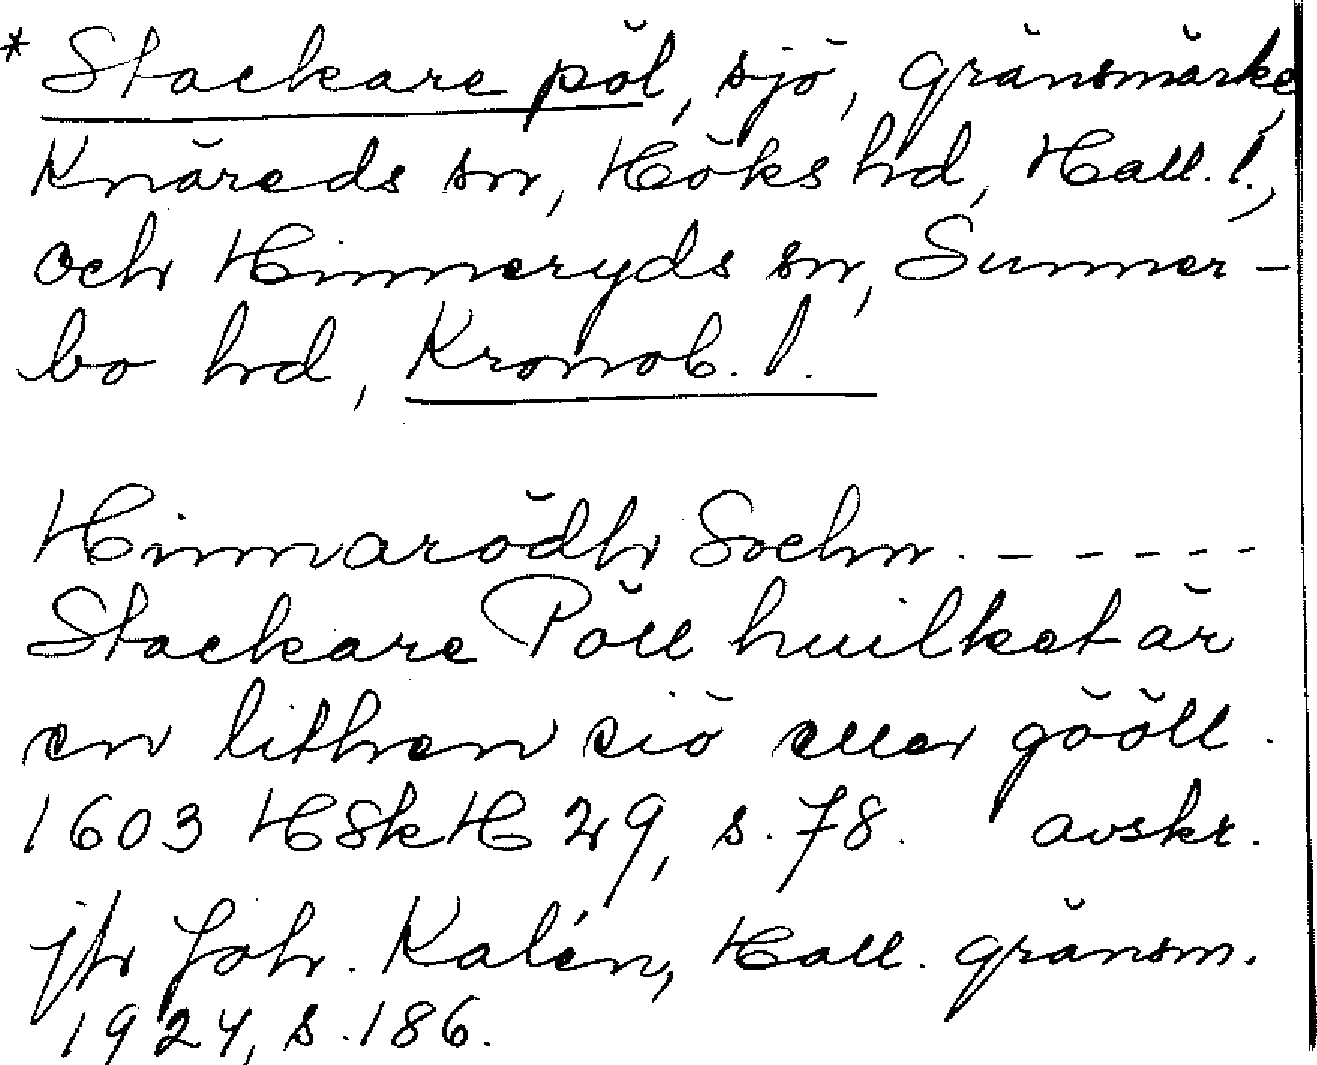 * Stackare pöl, sjö, gränsmärke,
Knäreds sn, Höks hd, Hall. l.,
och Hinneryds sn, Sunner-
bo hd, Kronob. l.
Hinnarödh Sochn. - - - - -
Stackare Pöll huilket är
en lithen siö eller gööll.
1603 HSkH 29, s. 78. avskr.
jfr Joh. Kalén, Hall. gränsm.
1924, s. 186.